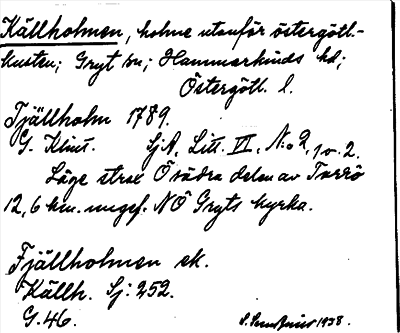 Källholmen, holme utanför östergötl.-
kusten; Gryt sn; Hammarkinds hd;
Östergötl. l.
Tjällholm 1789.
G. Klint. SjA, Litt. VI, N:o 2, 1 o. 2.
Läge strax Ö södra delen av Torrö
12,6 km. ungef. NÖ Gryts kyrka.
Fjällholmen ek.
Källh. Sj: 252.
G. 46. 1938.